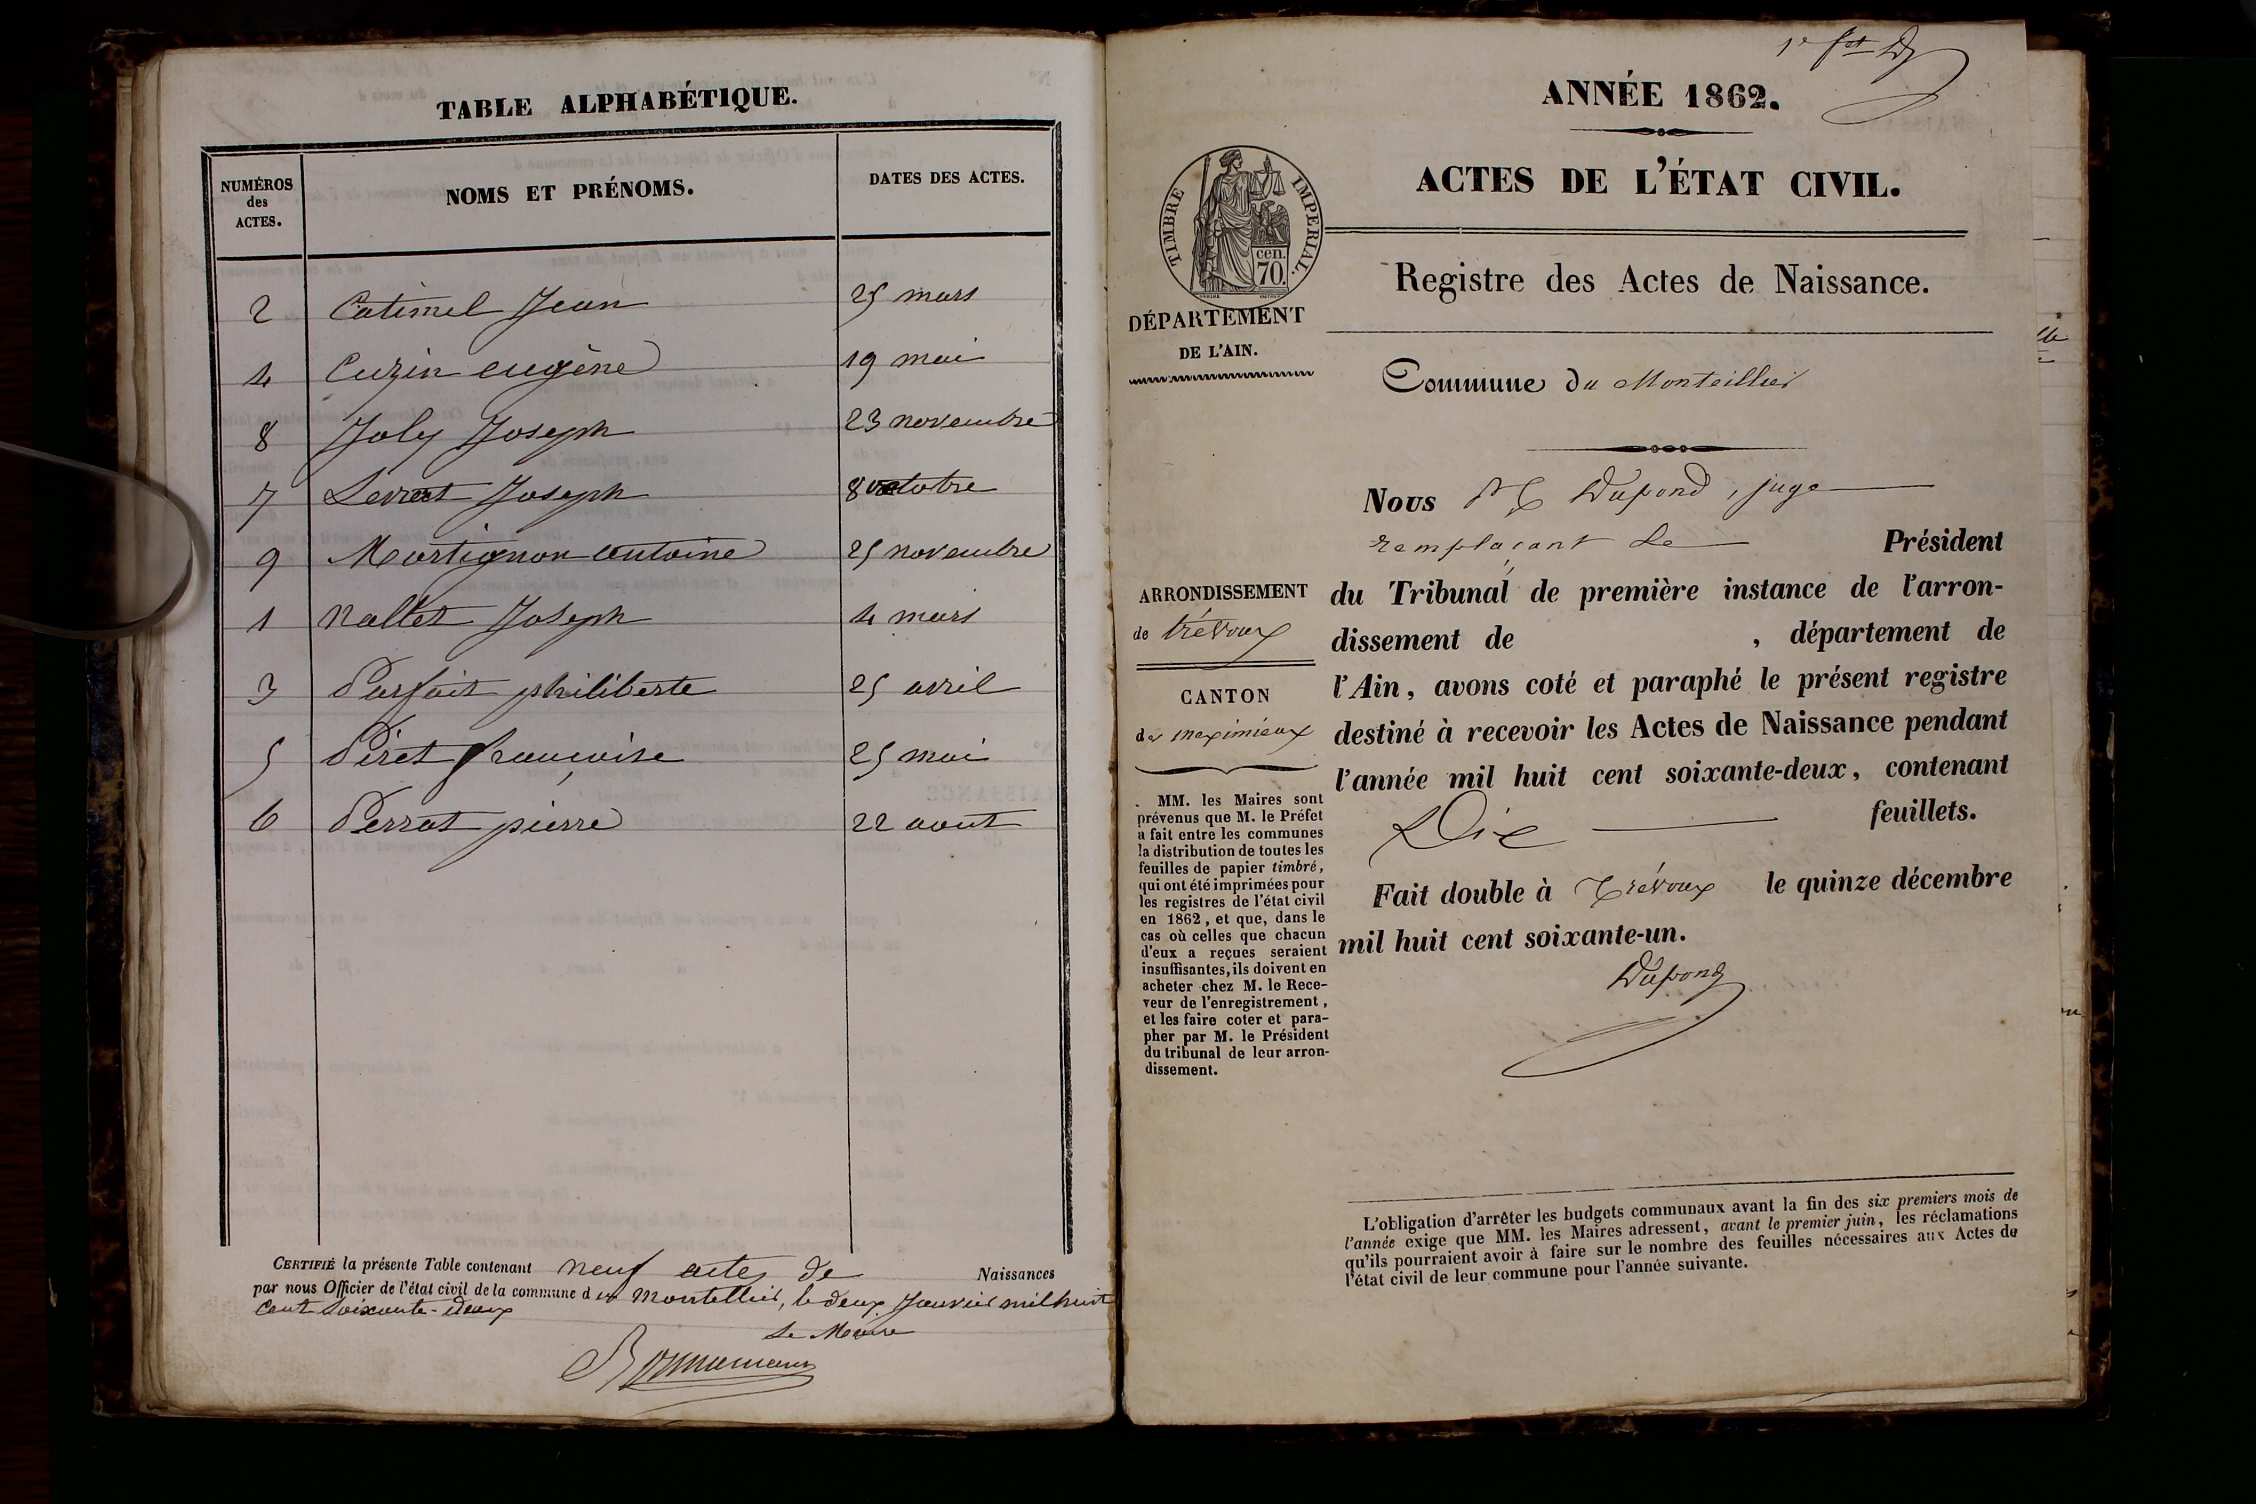 TABLE ALPHABÉTIQUE.
NUMÉROS des ACTES.
NOMS ET PRÉNOMS.
DATES DES ACTES.
2 Catimel Jean 25 mars
4 Cuzin eugène 19 mai
8 Joly Joseph 23 novembre
7 Levrat Joseph 8 octobre
9 Martignon antoine 25 novembre
1 Nallet Joseph 4 mars
3 Parfait philiberte 25 avril
5 Péret françoise 25 mai
6 Perrat pierre 22 aout
CERTIFIÉ la présente Table contenant neuf actes de Naissances
par nous Officier de l'état civil de la commune d u Montellier, le deux Janvier mil huit
cent soixante-deux
Le Maire
1er f et
ANNÉE 1862.
ACTES DE L'ÉTAT CIVIL.
TIMBRE IMPERIAL.
cen.
70.
Registre des Actes de Naissance.
DÉPARTEMENT
DE L'AIN.
Commune du Monteillier
Nous Dupond, juge
remplaçant Le Président
du Tribunal de première instance de l'arron-
dissement de , département de
l'Ain, avons coté et paraphé le présent registre
destiné à recevoir les Actes de Naissance pendant
l'année mil huit cent soixante-deux, contenant
Dix feuillets.
Fait double à Trévoux le quinze décembre
mil huit cent soixante-un.
Dupond
ARRONDISSEMENT
de trévoux
CANTON
de meximieux
MM. les Maires sont
prévenus que M. le Préfet
a fait entre les communes
la distribution de toutes les
feuilles de papier timbré,
qui ont été imprimées pour
les registres de l'état civil
en 1862, et que, dans le
cas où celles que chacun
d'eux a reçues seraient
insuffisantes, ils doivent en
acheter chez M. le Rece-
veur de l'enregistrement,
et les faire coter et para-
pher par M. le Président
du tribunal de leur arron-
dissement.
L'obligation d'arrêter les budgets communaux avant la fin des six premiers mois de
l'année exige que MM. les Maires adressent, avant le premier juin, les réclamations
qu'ils pourraient avoir à faire sur le nombre des feuilles nécessaires aux Actes de
l'état civil de leur commune pour l'année suivante.